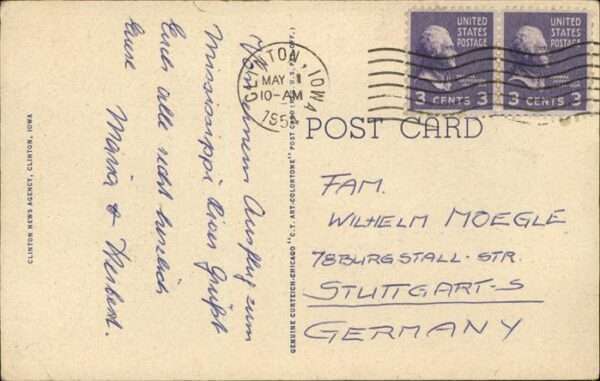 Von einem Ausflug zum
Mississippi River Grüßt
Euch alle recht herzlich
Eure Maria & Herbert.
CLINTON NEWS AGENCY, CLINTON, IOWA
GENUINE CURTEICH-CHICAGO "C.T. ART-COLORTONE" POST CARD (REG. U.S. PAT. OFF.)
CLINTON, IOWA
MAY
10-AM
195
UNITED
STATES
POSTAGE
3 CENTS 3
UNITED
STATES
POSTAGE
3 CENTS 3
POST CARD
FAM.
WILHELM MOEGLE
78 BURGSTALL-STR.
STUTTGART-S
GERMANY